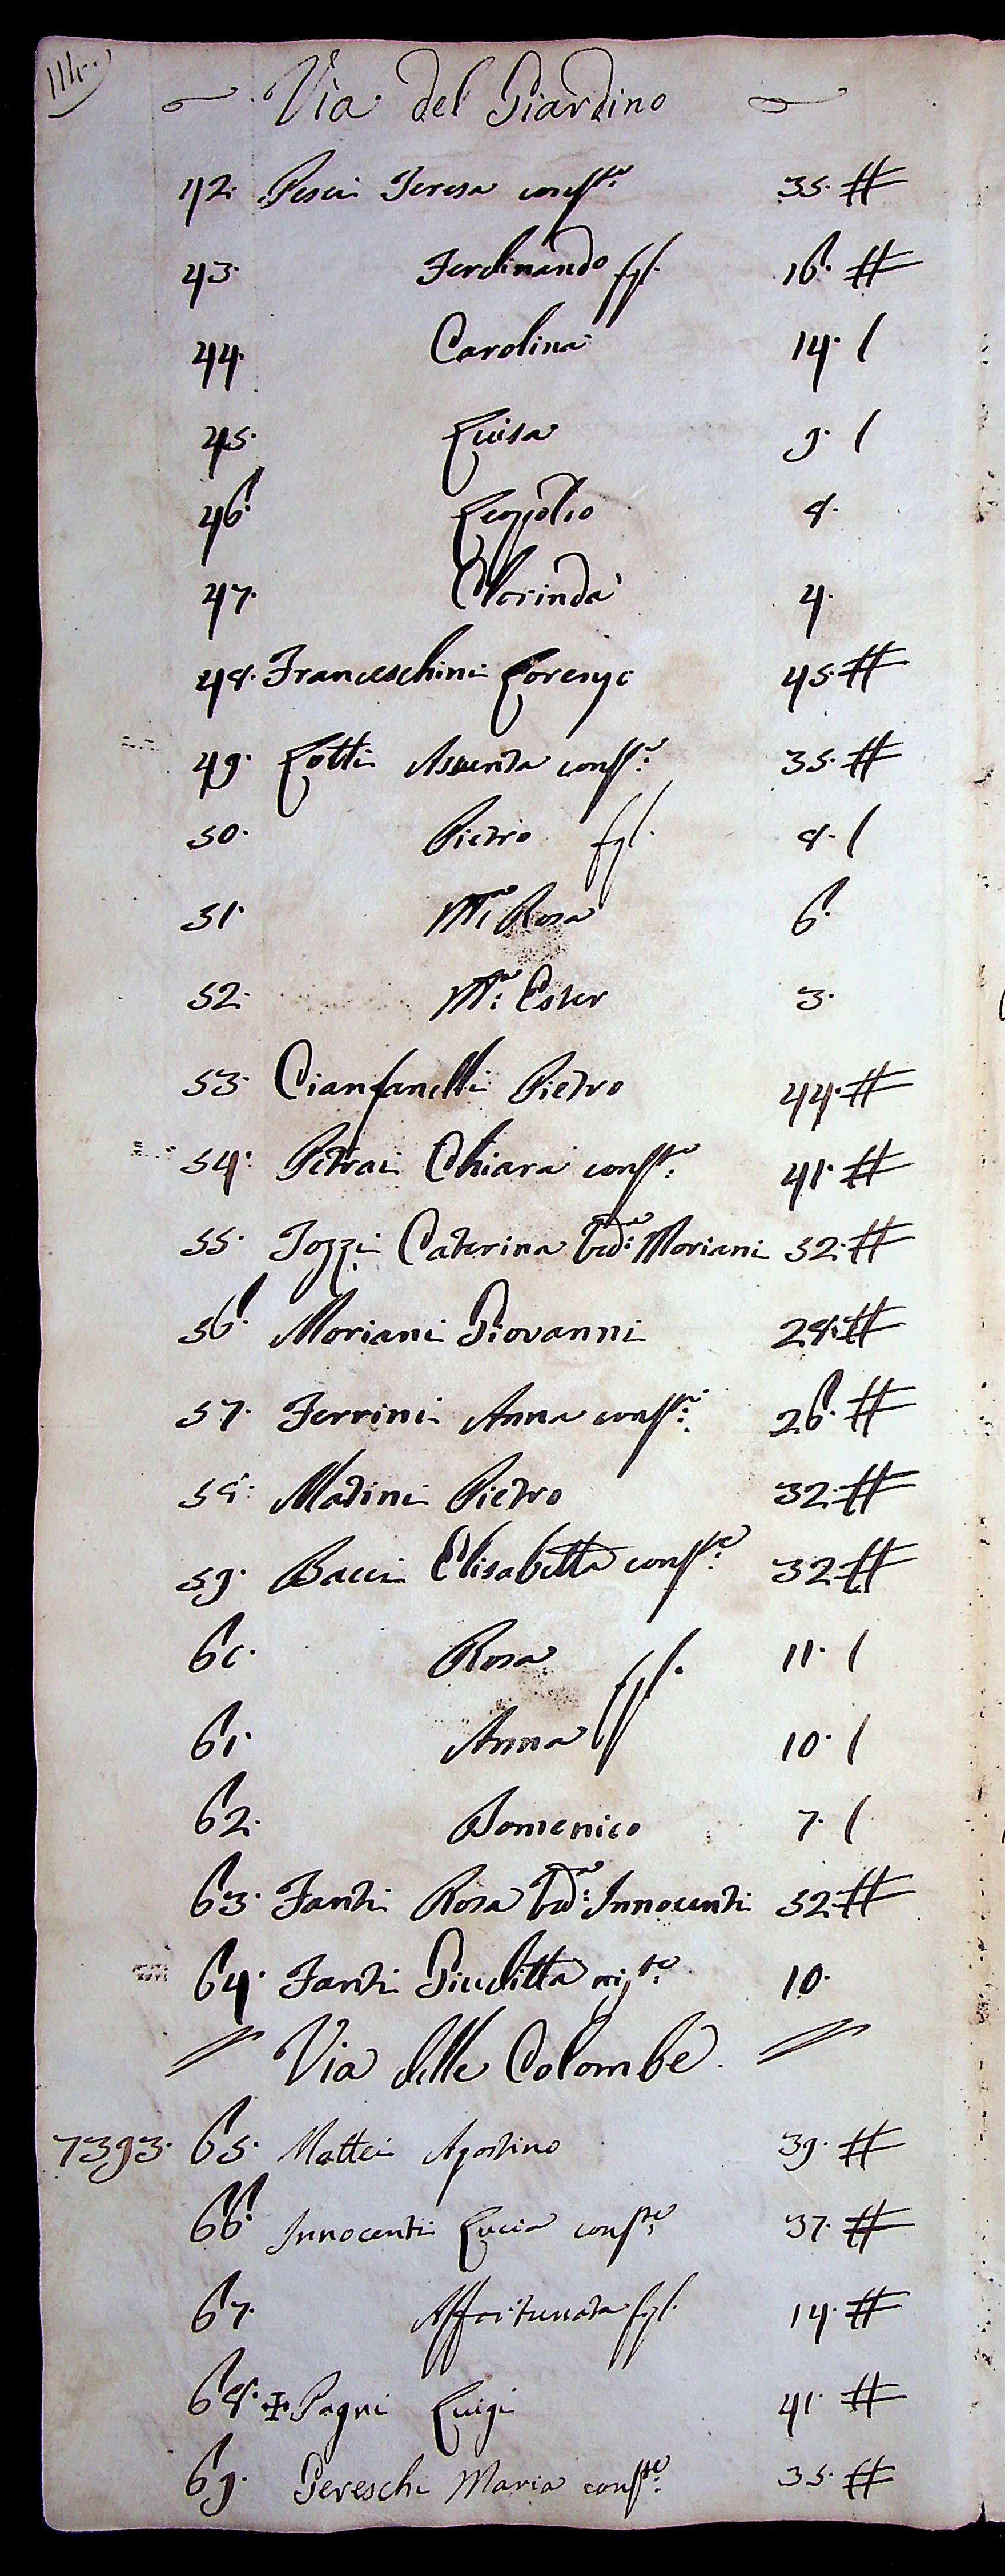 Via del Giardino
42. Pesci Teresa cons.te 35. #
43. Ferdinando figl. 16. #
44. Carolina 14. /
45. Luisa 9. /
46. Leopoldo 8.
47. Clorinda 4.
48. Franceschini Lorenzo 45. #
49. Lotti Assunta cons.te 35. #
50. Pietro figl. 8. /
51. M.a Rosa 6.
52. M.a Ester 3.
53. Cianfanelli Pietro 44. #
54. Petrai Chiara cons.te 41. #
55. Tozzi Caterina Ved.a Moriani 52. #
56. Moriani Giovanni 28. #
57. Ferrini Anna cons.te 26. #
58. Matini Pietro 32. #
59. Bacci Elisabetta cons.te 32. #
60. Rosa figl. 11. /
61. Anna 10. /
62. Domenico 7. /
63. Fanti Rosa Ved.a Innocenti 52. #
64. Fanti Giuditta 10.
Via delle Colombe.
7393. 65. Mattei Agostino 39. #
66. Innocenti Lucia cons.te 37. #
67. Affortunata figl. 14. #
68. Pagni Luigi 41. #
69. Gereschi Maria cons.te 35. #